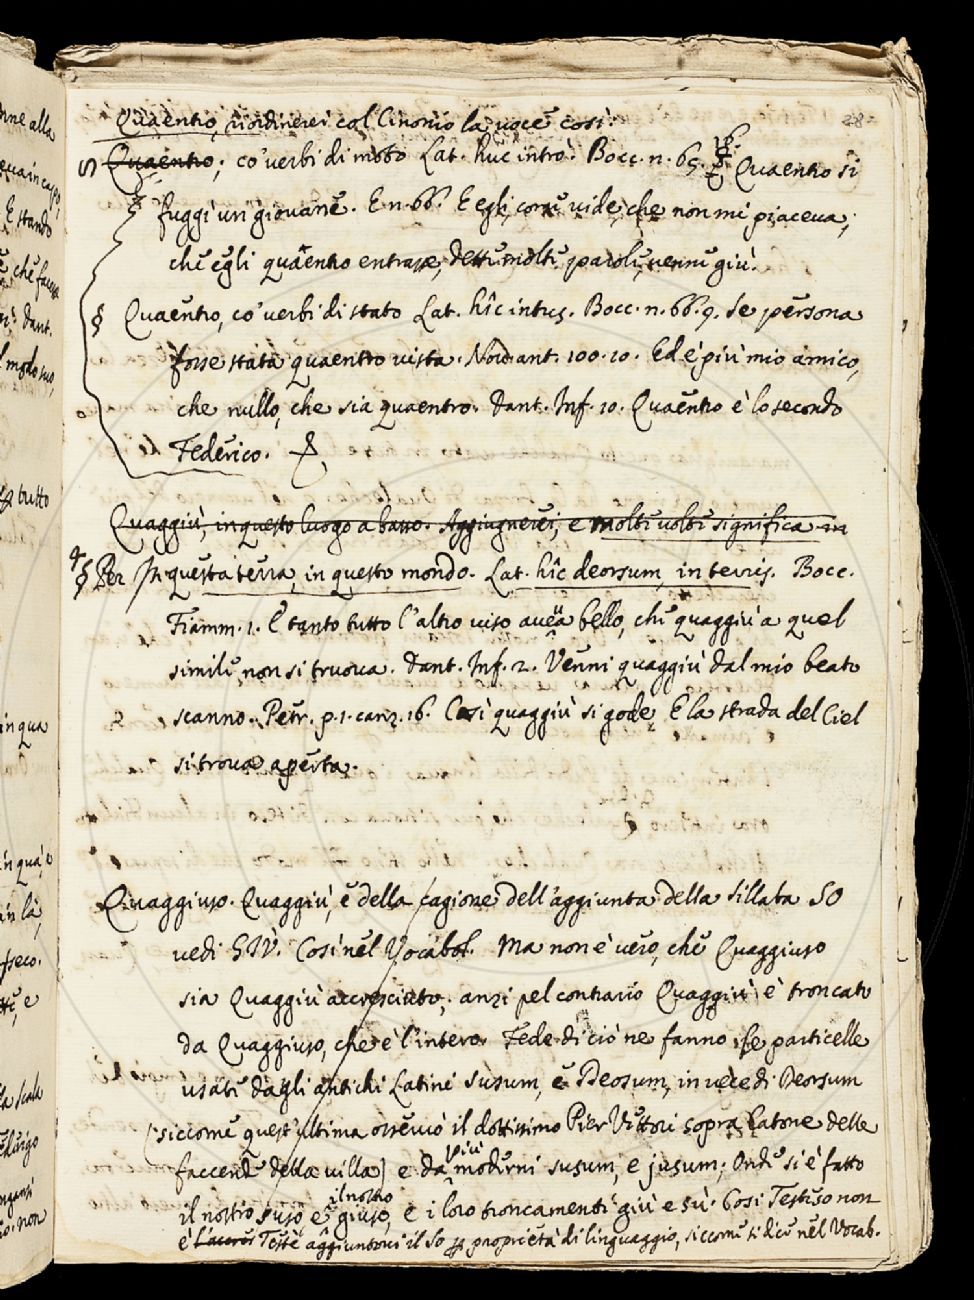 nne alla
28
Quaentro, riordinerei col Cinonio la voce così:
§ Quaentro; co' verbi di moto Lat. huc intro. Bocc. n. 65. 16. Quaentro si
fuggì un giovane. E n. 66. E egli, come vide, che non mi piaceva,
che egli quaentro entrasse, dette molte parole, venne giù.
§ Quaentro, co' verbi di stato Lat. hîc intus. Bocc. n. 66. 9. Se persona
forse stata quaentro vista. Nov. ant. 100. 10. Ed è più mio amico,
che nullo, che sia quaentro. Dant. Inf. 10. Quaentro è lo secondo
Federico.
Quaggiù, in questo luogo a basso. Aggiugnerei; e molte volte significa in
§ Per In questa terra, in questo mondo. Lat. hîc deorsum, in terris. Bocc.
Fiamm. 1. E tanto tutto l'altro viso avea bello, che quaggiù a quel
simile non si truova. Dant. Inf. 2. Venni quaggiù dal mio beato
scanno. Petr. p. 1. canz. 16. Così quaggiù si gode, E la strada del Ciel
si trova aperta.
Quaggiuso. Quaggiù, e della cagione dell'aggiunta della sillaba SO
vedi GIÙ. Così nel Vocabol. Ma non è vero, che Quaggiuso
sia Quaggiù accresciuto; anzi pel contrario Quaggiù è troncato
da Quaggiuso, che è l'intero. Fede di ciò ne fanno le particelle
usate dagli antichi Latini Susum, e Deosum, in vece di Deorsum
(siccome quest'ultima osservò il dottissimo Pier Vittori sopra Catone delle
faccende della villa) e da più moderni susum, e jusum; Onde si è fatto
il nostro suso e il nostro giuso, e i loro troncamenti giù e sù. Così Testeso non
è Testè aggiuntovi il so per proprietà di linguaggio, siccome si dice nel Vocab.